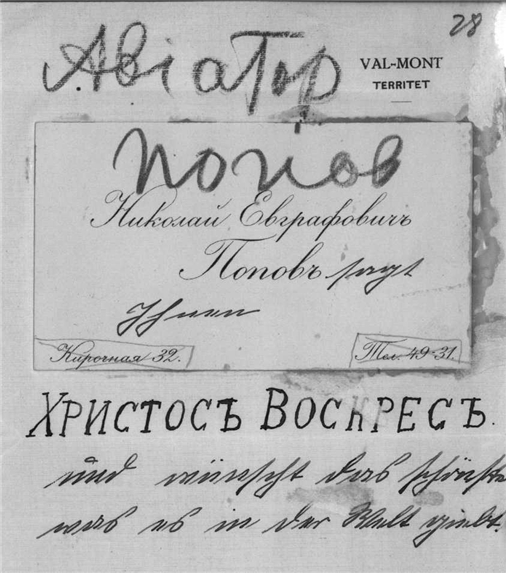 28
Авіаторъ
VAL-MONT
TERRITET
Попов
Николай Евграфовичъ
Поповъ sagt
Ihnen
Кирочная 32.
Тел. 49-31.
Христосъ Воскресъ.
und wünscht das schönste
was es in der Welt giebt.